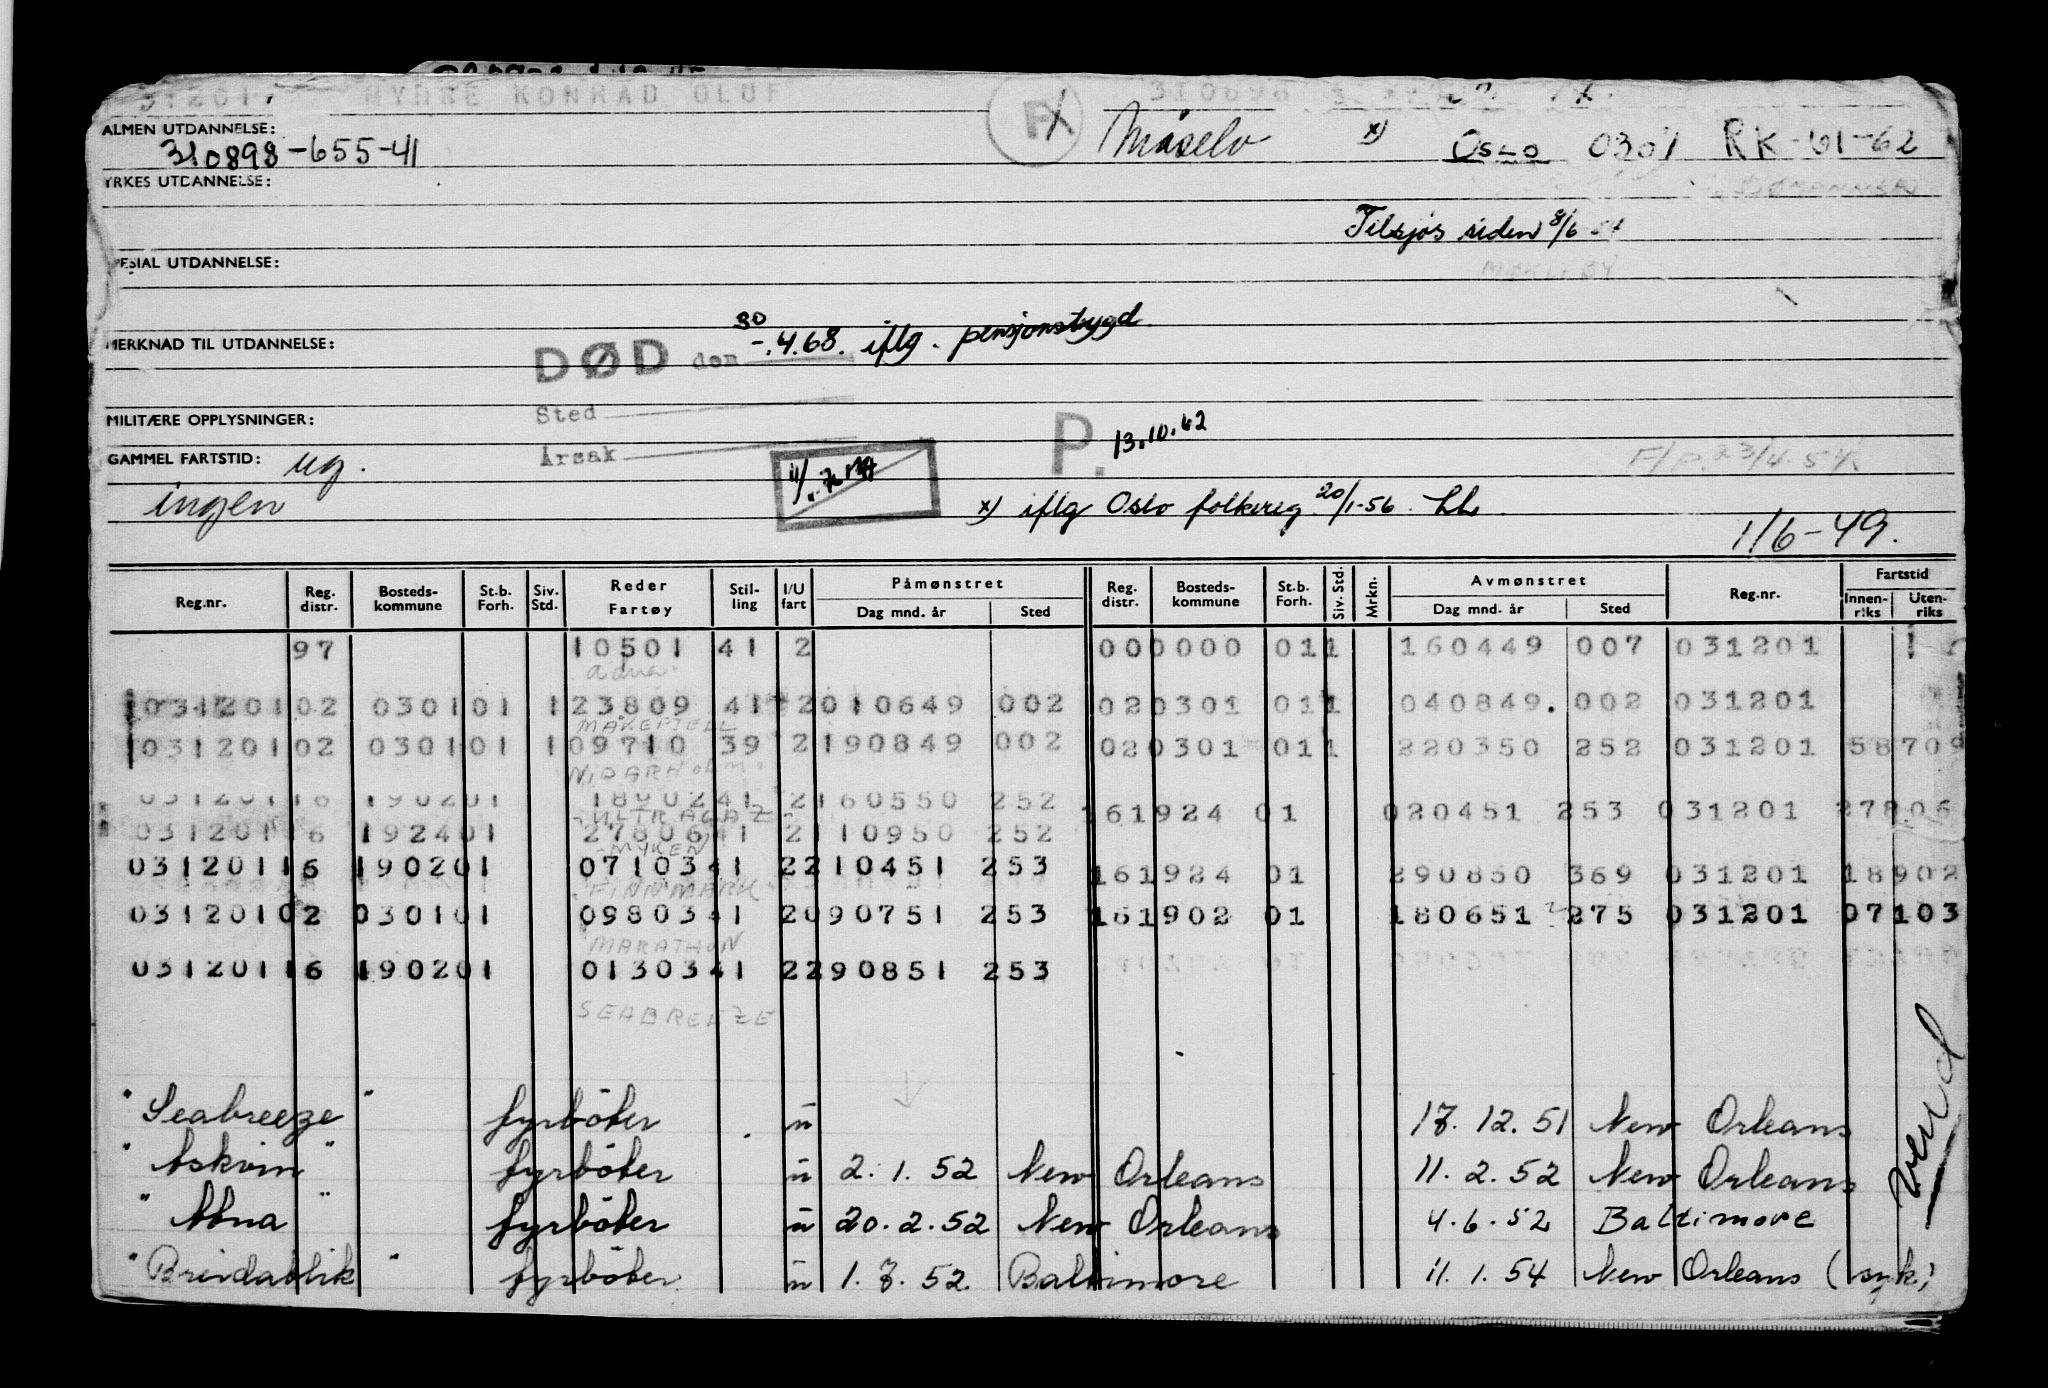 MYHRE KONRAD OLUF
ALMEN UTDANNELSE:
310898-655-41
Måselv x) Oslo 0301 RK-61-62
YRKES UTDANNELSE:
Tilsjøs siden 8/6
SPESIAL UTDANNELSE:
MERKNAD TIL UTDANNELSE:
DØD den 30.4.68. iflg. pensjonstrygd
Sted
MILITÆRE OPPLYSNINGER:
P. 13.10.62
Årsak
GAMMEL FARTSTID: ug.
F/P. 23/4-54
ingen
x) iflg Oslo folkereg. 20/1-56.
1/6-49.
Reg.nr. Reg. distr. Bosteds-kommune St.b. Forh. Siv. Std. Reder Fartøy Stil-ling I/U fart Påmønstret Dag mnd. år Sted Reg. distr. Bosteds-kommune St.b. Forh. Siv. Std. Mrkn. Avmønstret Dag mnd. år Sted Reg.nr. Fartstid Innen-riks Uten-riks
97 10501 41 2 000000 011 160449 007 031201
adna
031201 02 0301 01 1 23809 41 2 010649 002 020301 011 040849. 002 031201
MAKEFJELL
031201 02 0301 01 1 09710 39 2 190849 002 020301 011 220350 252 031201 58709
NIDARHOLM
031201 16 1902 01 18902 41 2 160550 252
ULTRAGAZ
161924 01 020451 253 031201 27806
031201 16 1924 01 27806 41 2 110950 252
MYKEN
031201 16 1902 01 07103 41 2 210451 253 161924 01 290850 369 031201 18902
FINNMARK
031201 02 0301 01 09803 41 2 090751 253 161902 01 180651 275 031201 07103
MARATHON
031201 16 1902 01 01303 41 2 290851 253
SEABREEZE
" Seabreeze " fyrböter u 17.12.51 New Orleans
" Askvin " fyrböter u 2.1.52 New Orleans 11.2.52 New Orleans
" Adna " fyrböter u 20.2.52 New Orleans 4.6.52 Baltimore
" Breidablik " fyrböter u 1.7.52. Baltimore 11.1.54 New Orleans (syk)
Vend